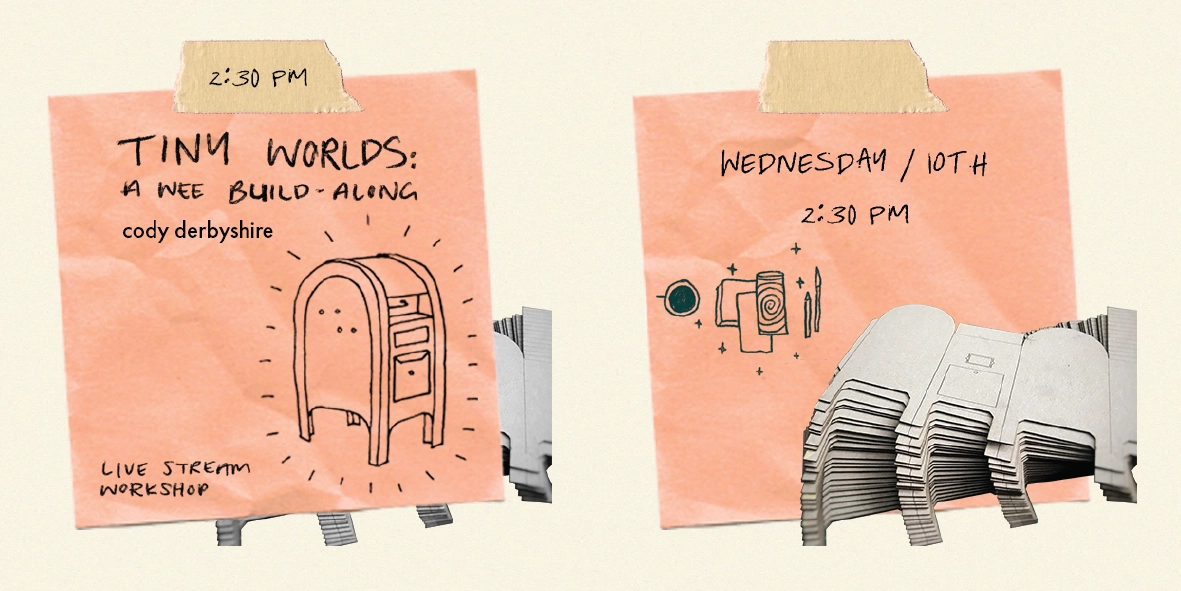 2:30 PM
TINY WORLDS:
A WEE BUILD-ALONG
cody derbyshire
LIVE STREAM
WORKSHOP
WEDNESDAY / 10TH
2:30 PM